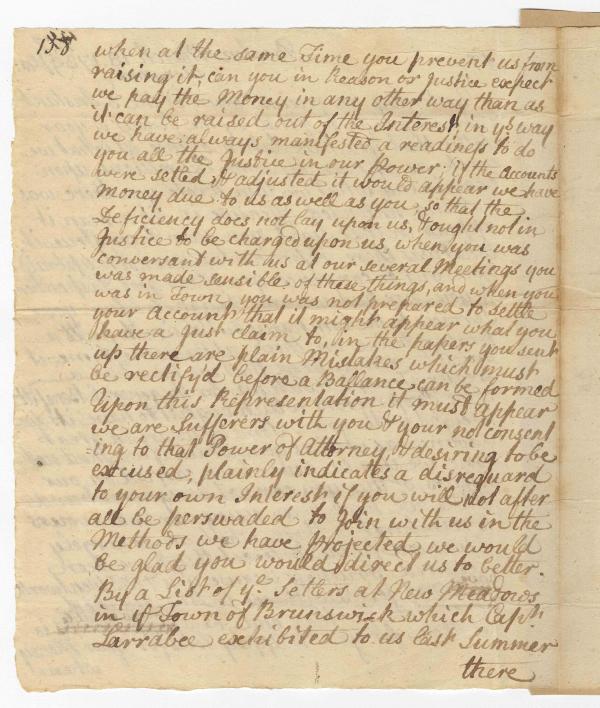 138
when at the same Time you prevent us from
raising it, can you in Reason or Justice expect
we pay the Money in any other way than as
it can be raised out of the Interest, in ye way
we have always manifested a readiness to do
you all the Justice in our Power; if the Accounts
were setled, & adjusted it would appear we have
Money due to us as well as you, so that the
Deficiency does not lay upon us, & ought not in
Justice to be charged upon us, when you was
conversant with us at our several Meetings you
was made sensible of these things, and when you
was in Town, you was not prepared to settle
your Account that it might appear what you
have a just claim to, in the papers you sent
up there are plain Mistakes which must
be rectifyd before a Ballance can be formed
Upon this Representation it must appear
we are Sufferers with you & your not consent
ing to that Power of Attorney, & desiring to be
excused, plainly indicates a disreguard
to your own Interest if you will not after
all be perswaded to Join with us in the
Methods we have projected, we would
be glad you would direct us to better.
By a List of ye Setlers at New Meadows
in ye Town of Brunswick which Capt
Larrabee exhibited to us last Summer
there